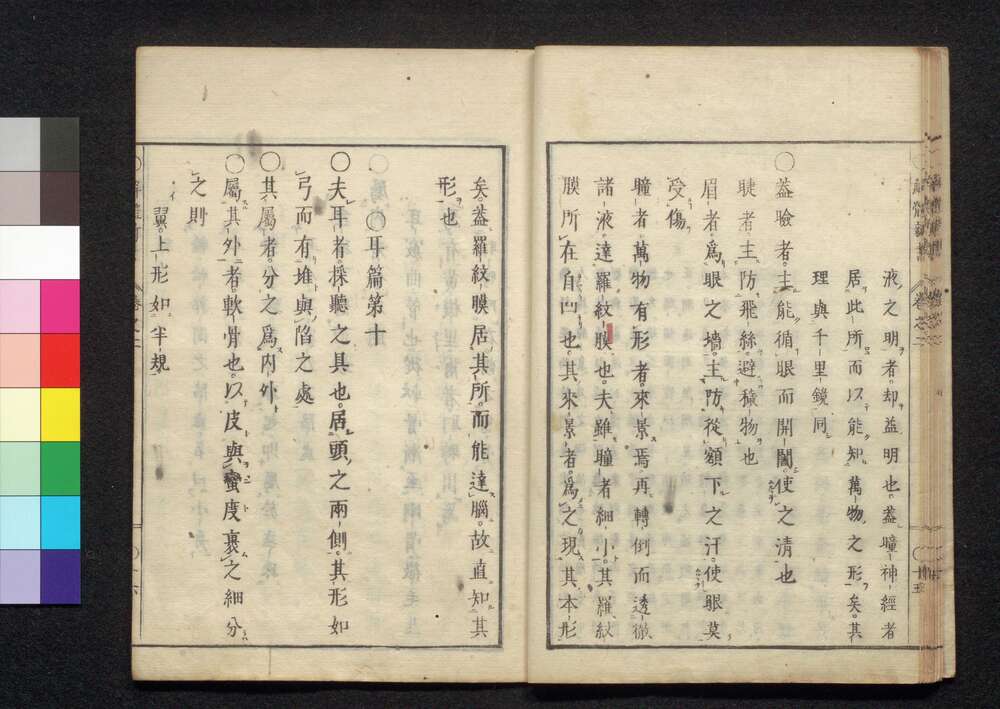 液之明者却益明也蓋瞳神經者
居此所而以能知萬物之形矣其
理與千里鏡同
〇蓋瞼者主能循眼而開闔使之清也
睫者主防飛絲避穢物也
眉者爲眼之墻主防從額下之汗使眼莫
受傷
瞳者萬物有形者來景焉再轉倒而透徹
諸液達羅紋膜也夫雖瞳者細小其羅紋
膜所在自凹也其來景者爲之現其本形
矣蓋羅紋膜居其所而能達腦故直知其
形也
〇耳篇第十
〇夫耳者採聽之具也居頭之兩側其形如
弓而有堆與陷之處
〇其屬者分之爲内外
〇屬其外者軟骨也以皮與蠻度裹之細分
之則
翼上形如半規